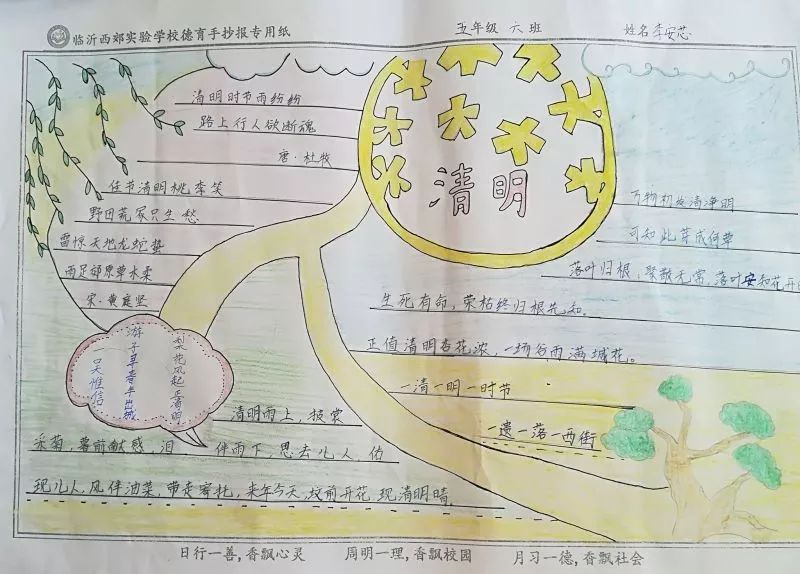 临沂西郊实验学校德育手抄报专用纸
五年级 六 班
姓名 李安芯
清明时节雨纷纷
路上行人欲断魂
唐·杜牧
清明
佳节清明桃李笑
野田荒冢只生愁
雷惊天地龙蛇蛰
雨足郊原草木柔
宋·黄庭坚
万物初发清净明
可知此芽成何草
落叶归根,聚散无常,落叶安知花开
生死有命,荣枯终归根先知.
正值清明杏花浓,一场谷雨满城花。
一清一明一时节
一遗一落一西街
梨花风起正清明
游子寻春半出城
一吴惟信
清明雨上,披裳
采菊,墓前献感,泪 伴雨下,思去儿人,仿
现儿人,风伴油菜,带走寄托,来年今天,坟前开花,现清明晴
日行一善,香飘心灵
周明一理,香飘校园
月习一德,香飘社会